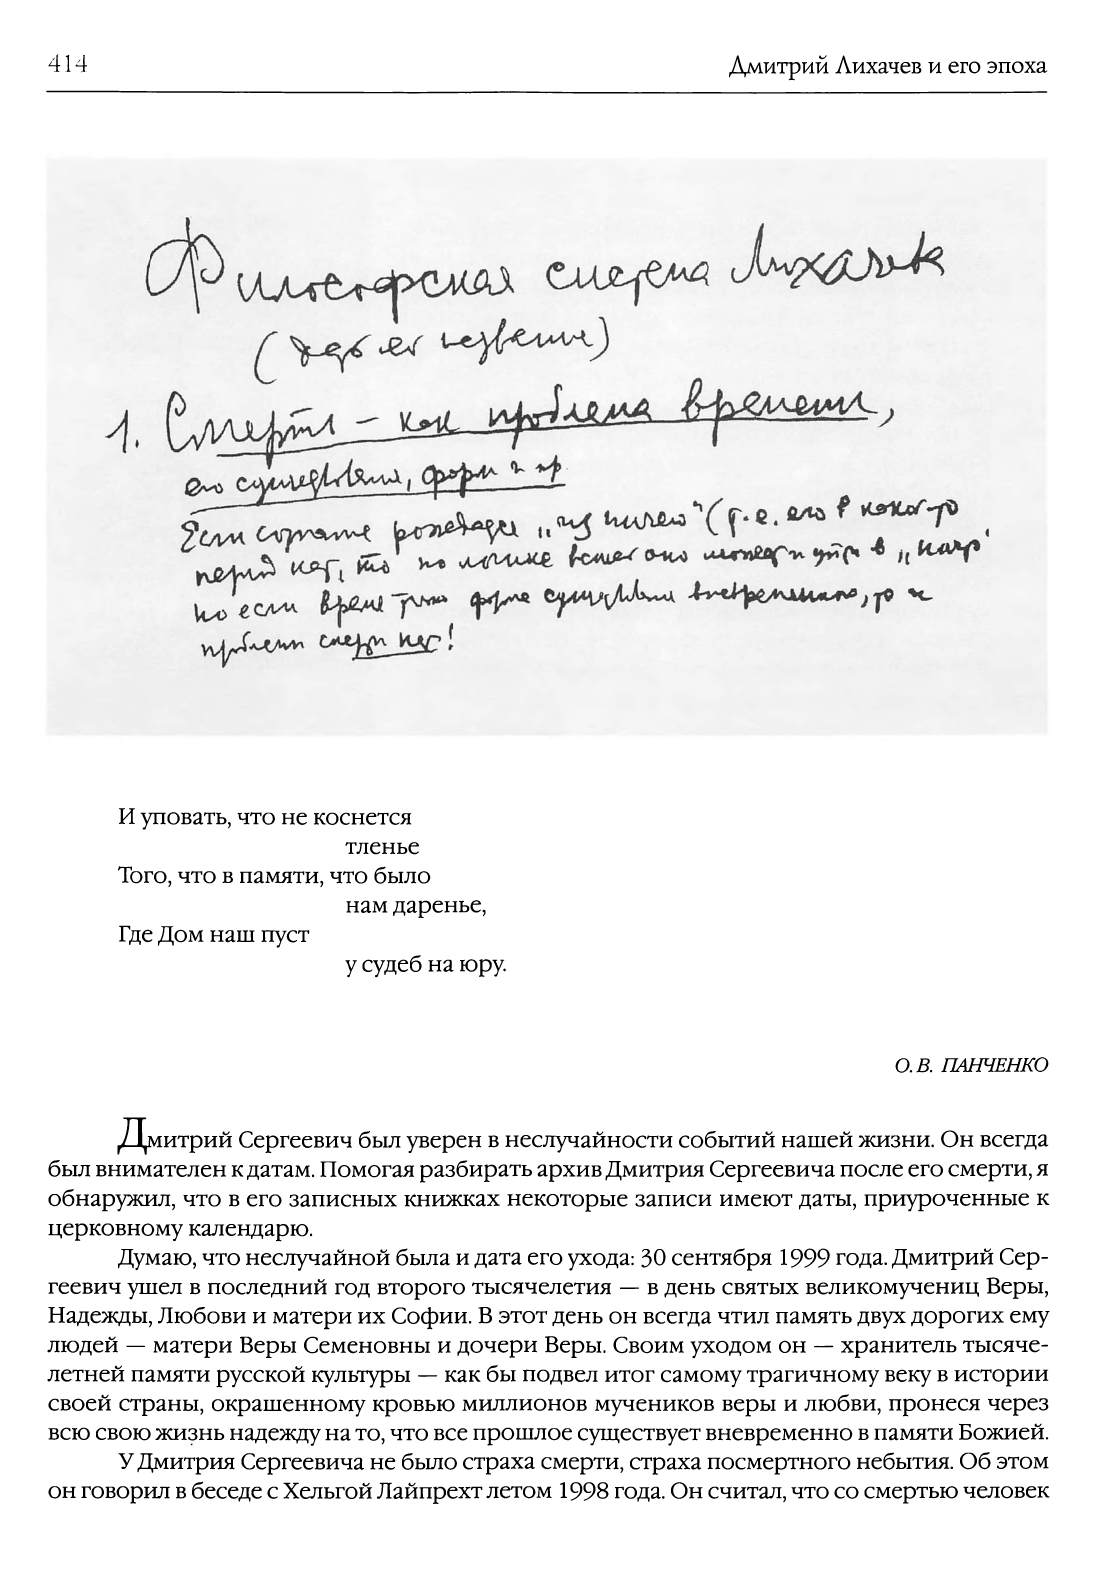 414
Дмитрий Лихачев и его эпоха
Философская система Лихачева
(
1. Смерть – как проблема времени,
его существования, форм и пр.
Если сознание рождается „из ничего" (т.е. его в какой-то
период нет, то по логике вещей оно может и уйти в „ничто"
но если время только форма существования вневременного, то и
проблемы смерти нет!
И уповать, что не коснется
тленье
Того, что в памяти, что было
нам даренье,
Где Дом наш пуст
у судеб на юру.
О. В. ПАНЧЕНКО
Дмитрий Сергеевич был уверен в неслучайности событий нашей жизни. Он всегда
был внимателен к датам. Помогая разбирать архив Дмитрия Сергеевича после его смерти, я
обнаружил, что в его записных книжках некоторые записи имеют даты, приуроченные к
церковному календарю.
Думаю, что неслучайной была и дата его ухода: 30 сентября 1999 года. Дмитрий Сер-
геевич ушел в последний год второго тысячелетия — в день святых великомучениц Веры,
Надежды, Любови и матери их Софии. В этот день он всегда чтил память двух дорогих ему
людей — матери Веры Семеновны и дочери Веры. Своим уходом он — хранитель тысяче-
летней памяти русской культуры — как бы подвел итог самому трагичному веку в истории
своей страны, окрашенному кровью миллионов мучеников веры и любви, пронеся через
всю свою жизнь надежду на то, что все прошлое существует вневременно в памяти Божией.
У Дмитрия Сергеевича не было страха смерти, страха посмертного небытия. Об этом
он говорил в беседе с Хельгой Лайпрехт летом 1998 года. Он считал, что со смертью человек